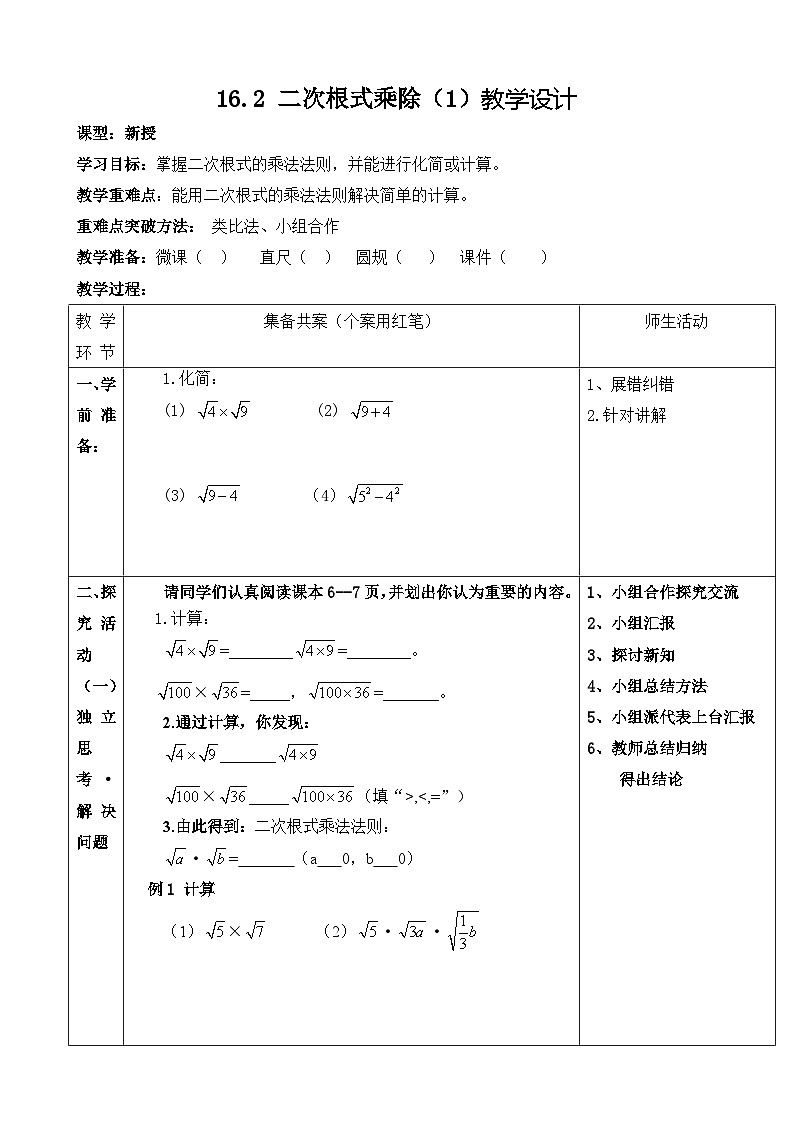 16.2 二次根式乘除（1）教学设计
课型：新授
学习目标：掌握二次根式的乘法法则，并能进行化简或计算。
教学重难点：能用二次根式的乘法法则解决简单的计算。
重难点突破方法： 类比法、小组合作
教学准备：微课（ ） 直尺（ ） 圆规（ ） 课件（ ）
教学过程：
教 学
环 节
集备共案（个案用红笔）
师生活动
一、学
前 准
备：
1.化简：
(1) √4×√9 (2) √(9+4)
(3) √(9−4) （4）√(5²−4²)
1、展错纠错
2.针对讲解
二、探
究 活
动
（一）
独 立
思
考 ·
解 决
问题
请同学们认真阅读课本 6--7 页，并划出你认为重要的内容。
1.计算：
√4×√9=________√(4×9)=________。
√100×√36=_____，√(100×36)=_______。
2.通过计算，你发现：
√4×√9_______√(4×9)
√100×√36_____√(100×36)（填“>,<,=”）
3.由此得到：二次根式乘法法则：
√a·√b=_______（a___0，b___0）
例1 计算
（1）√5×√7 （2）√5·√(3a)·√(1/3 b)
1、小组合作探究交流
2、小组汇报
3、探讨新知
4、小组总结方法
5、小组派代表上台汇报
6、教师总结归纳
得出结论